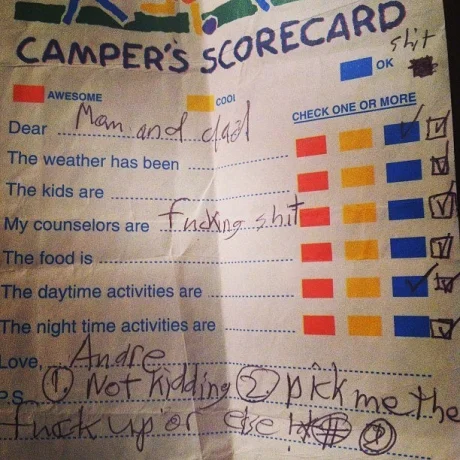 CAMPER'S SCORECARD
shit
AWESOME COOL OK
CHECK ONE OR MORE
Dear Mom and dad
The weather has been
The kids are
My counselors are fucking shit
The food is
The daytime activities are
The night time activities are
Love, Andre
P.S. 1. Not kidding 2 pick me the
fuck up or else!